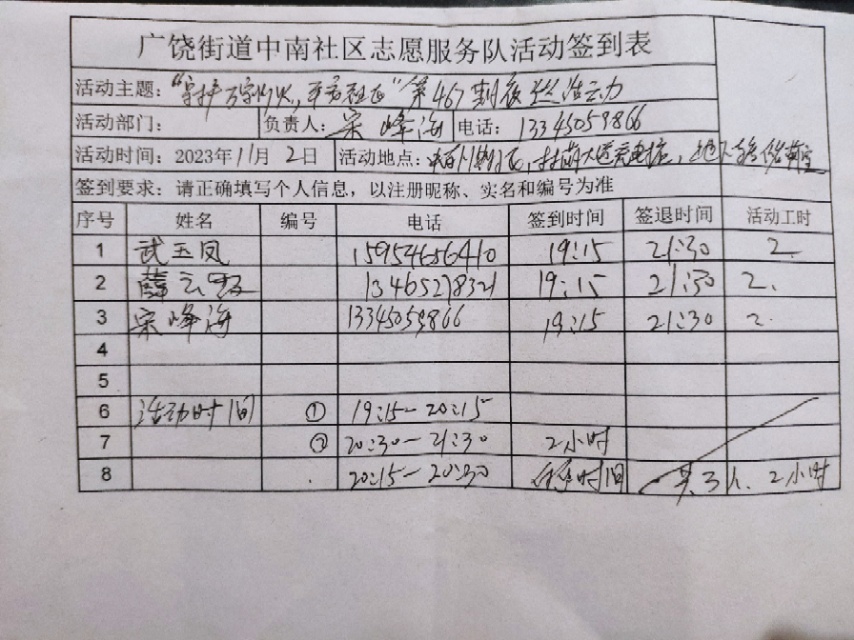 广饶街道中南社区志愿服务队活动签到表
活动主题：“守护万家灯火，平安社区”第467期夜巡活动
活动部门： 负责人：宋峰海 电话：13345059866
活动时间：2023年11月2日 活动地点：
签到要求：请正确填写个人信息，以注册昵称、实名和编号为准
序号 姓名 编号 电话 签到时间 签退时间 活动工时
1 武玉凤 15954656410 19:15 21:30 2
2 薛云 13465278321 19:15 21:30 2.
3 宋峰海 13345059866 19:15 21:30 2.
4
5
6 活动时间 ① 19:15-20:15
7 ② 20:30-21:30 2小时
8 20:15-20:30 休息时间 共3人、2小时